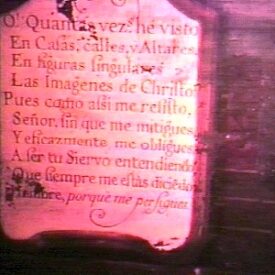 O! Quantas vezs. hè visto
En Casas, calles, y Altares
En figuras singulares
Las Imagenes de Christo
Pues como assi me resisto,
Señor, sin que me mitigues
Y eficazmente me obligues
A ser tu Siervo entendiendo
Que siempre me estás diciēdo
porque me persigues